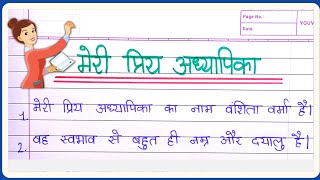 Page No.:
Date:
YOUV
मेरी प्रिय अध्यापिका
1. मेरी प्रिय अध्यापिका का नाम वंशिता वर्मा है।
2. वह स्वभाव से बहुत ही नम्र और दयालु है।